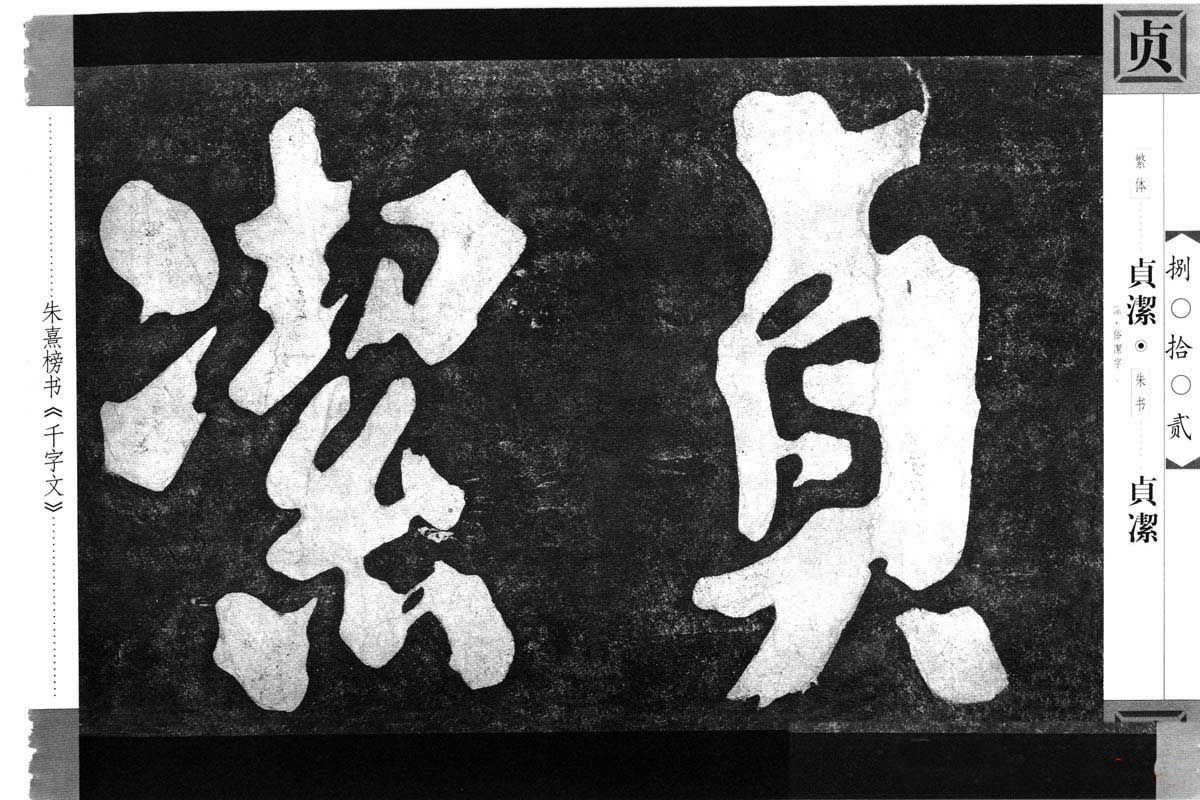 贞
繁体
貞潔
朱书
貞潔
捌〇拾〇贰
貞潔
朱熹榜书《千字文》